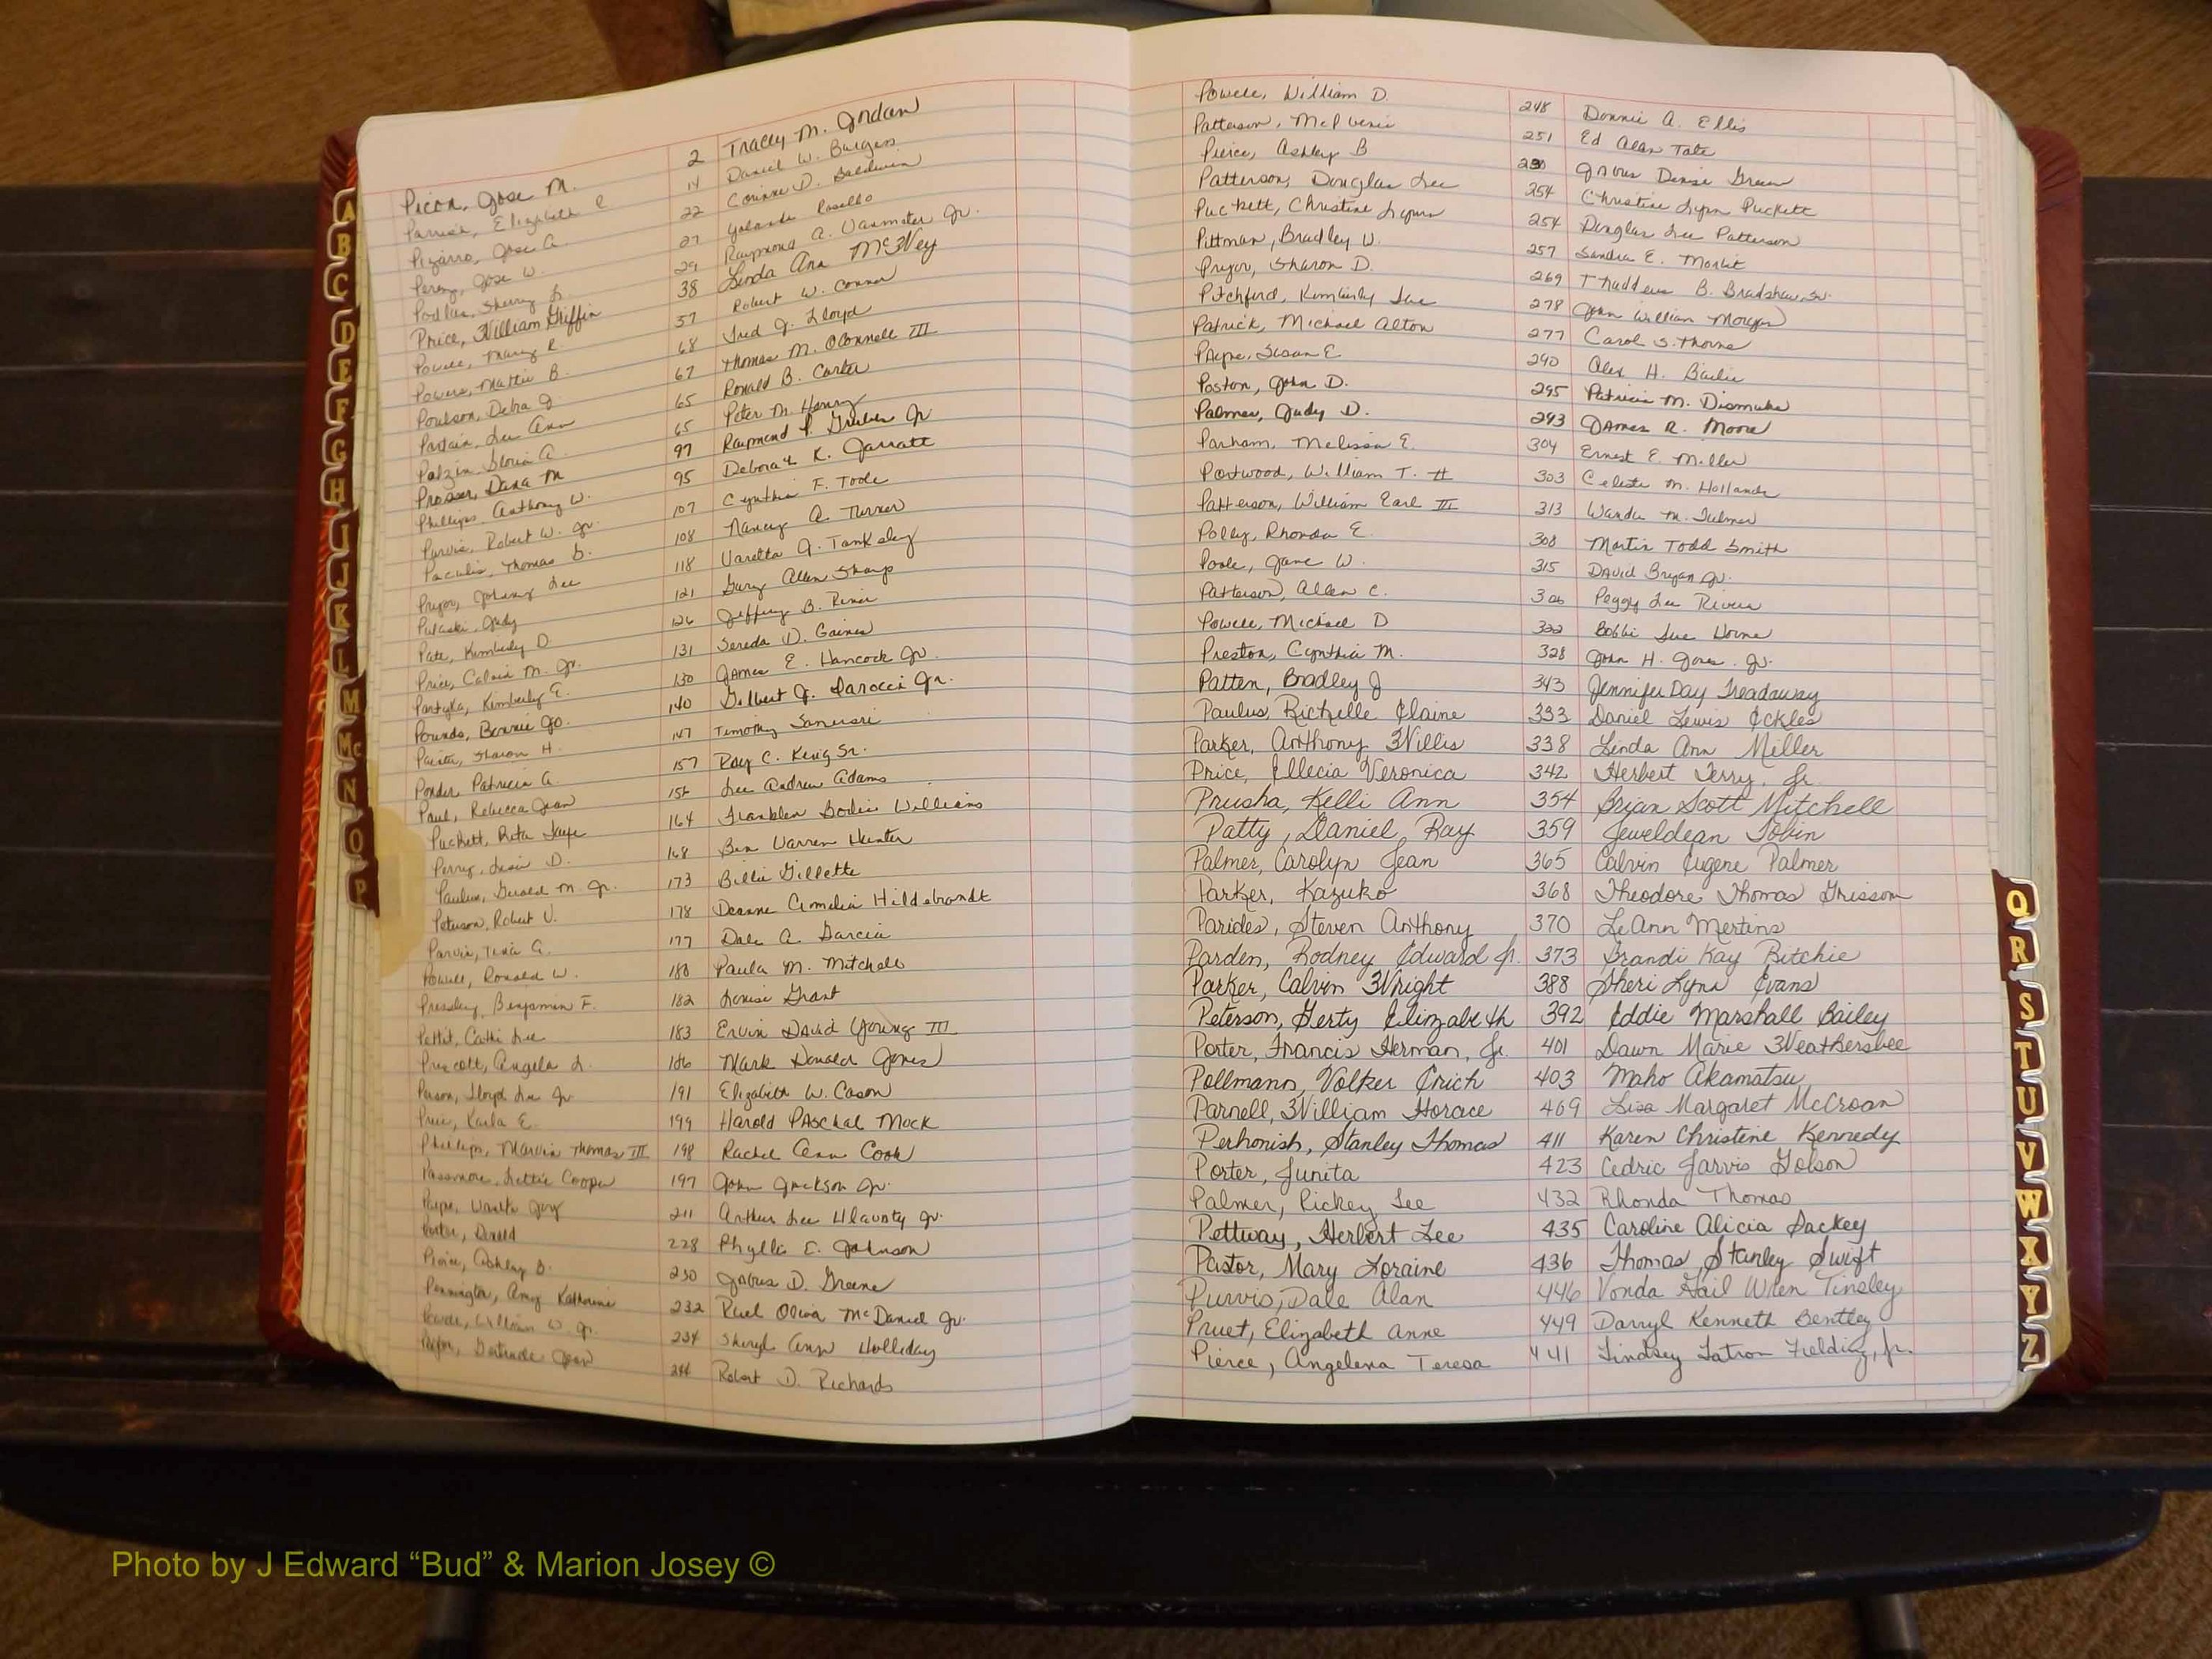 Picon, Jose M. 2 Tracey M. Jordan
Parrish, Elizabeth C 14 Daniel W. Burgess
Pizarro, Jose A. 22 Corinne D. Baldwin
Perez, Jose W. 27 Yolanda Rosello
Sherry L. 29 Raymond A. Vanmeter Jr.
Price, William Griffin 38 Linda Ann McVey
Powell, Mary R. 57 Robert W. Connor
Powers, Mattie B. 68 Fred J. Lloyd
Poulson, Debra J 67 Thomas M. O'Connell III
Lee Ann 65 Ronald B. Carter
Gloria A. 65 Peter M. Henry
Prosser, Dana M 97 Raymond P. Gruber Jr
Phillips, Anthony W. 95 Deborah K. Jarratt
Purvis, Robert W. Jr. 107 Cynthia F. Toole
Thomas 108 Nancy A. Turner
Pryor, Johnny Lee 118 Varetta J. Tanksley
Pulaski, Judy 121 Gary Allen Sharp
Pate, Kimberly D. 126 Jeffrey B.
Price, Calvin M. Jr. 131 Sereda D. Gaines
Partyka, Kimberly E. 130 James E. Hancock Jr.
Pounds, Bennie Jo. 140 Gilbert J. Jr.
Sharon H. 147 Timothy
Ponder, Patricia A. 157 Roy C. King Sr.
Paul, Rebecca Jean 156 Lee Andrew Adams
Puckett, Rita Faye 164 Franklin Williams
Perry, D. 168 Ben Warren Hunter
Paulus, Gerald M. Jr. 173 Billie Gillette
Peterson, Robert V. 178 Deanne Amelia Hildebrandt
Parvin, Tina A. 177 Dale A. Garcia
Powell, Ronald W. 180 Paula M. Mitchell
Pressley, Benjamin F. 182 Louise Grant
Pettit, Cathi Lee 183 Ervin David Young III
Prescott, Angela L. 186 Mark Donald Jones
Lloyd Lee Jr. 191 Elizabeth W. Cason
Karla E. 199 Harold Paschal Mock
Phillips, Marvin Thomas III 198 Rachel Ann Cook
Passmore, Lettie Cooper 197 John Jackson Jr.
211 Arthur Lee Jr.
Porter, Donald 228 Phyllis E. Johnson
Pierce, Ashley B. 230 D. Greene
Pennington, Amy Katherine 232 McDaniel Jr.
William W. Jr. 234 Sheryl Ann Holliday
Gertrude Jean 244 Robert D. Richards
A
B
C
D
E
F
G
H
I
J
K
L
M
Mc
N
O
P
Powell, William D. 248 Donnie A. Ellis
Patterson, 251 Ed Alan Tate
Pierce, Ashley B 230 Denise Green
Patterson, Douglas Lee 254 Christine Lynn Puckett
Puckett, Christine Lynn 254 Douglas Lee Patterson
Pittman, Bradley W. 257 Sandra E.
Pryor, Sharon D. 269 Thaddeus B. Bradshaw, Sr.
Pitchford, Kimberly Sue 278 John William Morgan
Patrick, Michael Alton 277 Carol S. Thorne
Payne, Susan E 290 Alex H. Bailie
Poston, John D. 295 Patricia M. Dismuke
Palmer, Judy D. 293 James R. Moore
Parham, Melissa E. 304 Ernest E. Miller
Portwood, William T. II 303 Celeste M. Hollands
Patterson, William Earl III 313 Wanda M. Fulmer
Polly, Rhonda E. 308 Martin Todd Smith
Poole, Jane W. 315 David Bryan Jr.
Patterson, Allen C. 306 Peggy Lee Rivers
Powell, Michael D 322 Bobbi Sue Horne
Preston, Cynthia M. 328 John H. Jones Jr.
Patten, Bradley J 343 Jennifer Day Treadaway
Paulus, Richelle Elaine 333 Daniel Lewis Eckles
Parker, Anthony Willis 338 Linda Ann Miller
Price, Ellecia Veronica 342 Herbert Terry, Jr.
Prusha, Kelli Ann 354 Brian Scott Mitchell
Patty, Daniel Ray 359 Jeweldean Tobin
Palmer, Carolyn Jean 365 Calvin Eugene Palmer
Parker, Kazuko 368 Theodore Thomas Grissom
Parides, Steven Anthony 370 LeAnn Mertins
Parden, Rodney Edward Jr. 373 Brandi Kay Ritchie
Parker, Calvin Wright 388 Sheri Lynn Evans
Peterson, Gerty Elizabeth 392 Eddie Marshall Bailey
Porter, Francis Herman, Jr. 401 Dawn Marie Weathersbee
Pollmann, Volker Erich 403 Maho Akamatsu
Parnell, William Horace 409 Lisa Margaret McCroan
Perhonish, Stanley Thomas 411 Karen Christine Kennedy
Porter, Junita 423 Cedric Jarvis Golson
Palmer, Rickey Lee 432 Rhonda Thomas
Pettway, Herbert Lee 435 Caroline Alicia Sackey
Pastor, Mary Loraine 436 Thomas Stanley Swift
Purvis, Dale Alan 446 Vonda Gail Wren Tinsley
Pruet, Elizabeth Anne 449 Darryl Kenneth Bentley
Pierce, Angelena Teresa 441 Lindsey Latron Fielding, Jr.
Q
R
S
T
U
V
W
X
Y
Z
Photo by J Edward “Bud” & Marion Josey ©